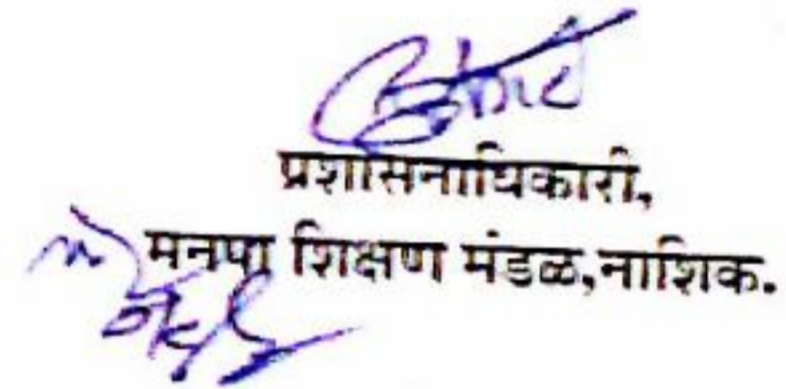 प्रशासनाधिकारी,
मनपा शिक्षण मंडळ,नाशिक.